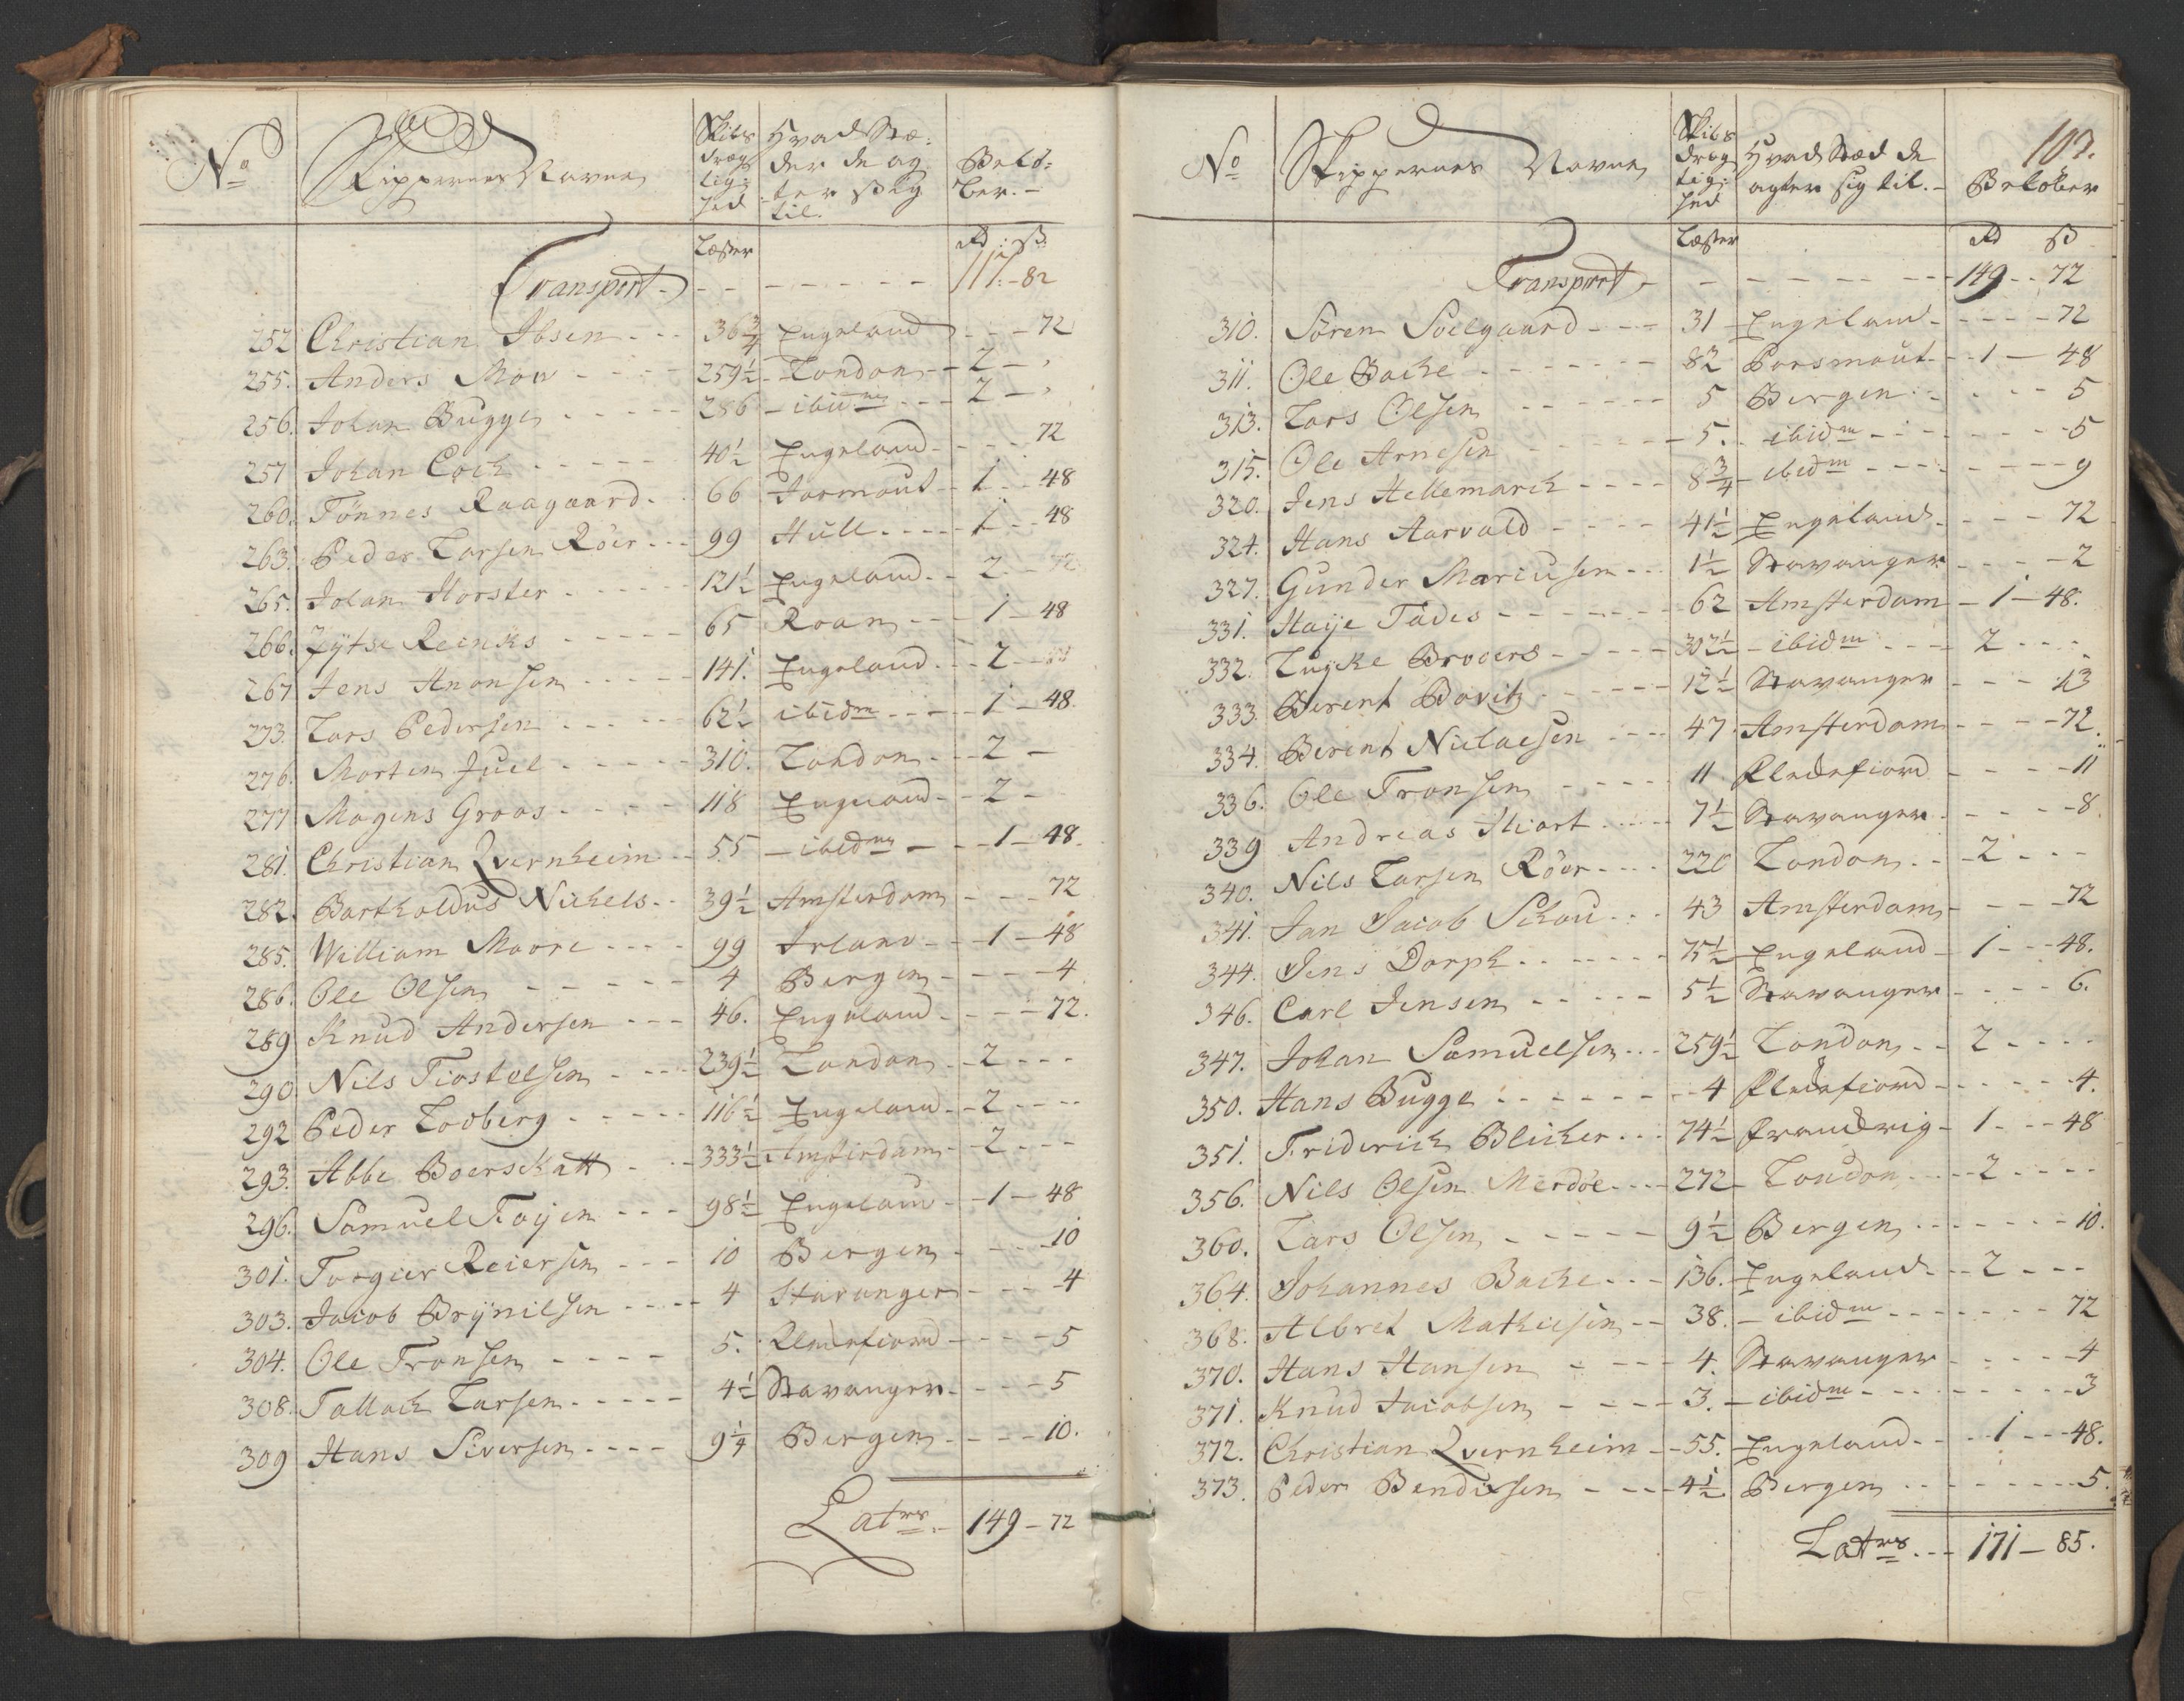 No Skippernes Navne Skibs dræg tig: hed Hvad Stæ: der de ag ter sig til. Belø: ber.
Læster Rd ß
Transport 111 - 82
252 Christian Ibsen 36 3/4 Engeland 72
255. Anders Mow 259 1/2 London 2
256. Johan Bugge 286 ibidm 2
257 Johan Coch 40 1/2 Engeland 72
260. Tønnes Raagaard 66 Jarmout 1 48
263. Peder Larsen Röer 99 Hull 1 48
265. Johan Horster 121 1/2 Engeland 2
266. Jÿtse Reinkes 65 Roan 1 48
267 Jens Anonsen 141. Engeland 2
273. Lars Pedersen 62 1/2 ibidm 1 48
276. Morten Juel 310. London 2
277 Mogens Groos 118 Engeland 2
281. Christian Qvernheim 55 ibidm 1 48
282. Bartholdus Nickels 39 1/2 Amsterdam 72
285. William Moore 99 Irland 1 48
286. Ole Olsen 4 Bergen 4
289 Knud Andersen 46. Engeland 72
290. Nils Tiostelsen 239 1/2 London 2
292 Peder Lodberg 116 1/2 Engeland 2
293. Abbe Boers Katt 333 1/2 Amsterdam 2
296. Samuel Foÿen 98 1/2 Engeland 1 48
301. Torgier Reiersen 10 Bergen 10
303. Jacob Brÿnilsen 4 Stavanger 4
304. Ole Tronsen 5. Fledefiord 5
308. Tallach Larsen 4 1/2 Stavanger 5
309 Hans Siversen 9 1/4 Bergen 10.
Latus 149 - 72
103.
No Skippernes Navne Skibs dræg tig: hed Hvad Stæd de agter sig til. Beløber
Læster Rd ß
Transport 149 - 72
310. Søren Soelgaard 31 Engeland 72
311. Ole Bache 82 Porsmout 1 48
313. Lars Olsen 5 Bergen 5
315. Ole Arnesen 5. ibidm 5
320. Jens Hellemarck 8 3/4 ibidm 9
324. Hans Aarvold 41 1/2 Engeland 72
327. Gunder Mariusen 1 1/2 Stavanger 2
331. Haÿe Tades 62 Amsterdam 1 48.
332. Luÿke Broders 302 1/2 ibidm 2
333. Berent Bovitz 12 1/2 Stavanger 13
334. Berent Nielaesen 47 Amsterdam 72.
336. Ole Tronsen 11 Fledefiord 11
339 Andreas Hiort 7 1/2 Stavanger 8
340. Nils Larsen Röer 220 London 2
341. Jan Jacob Schou 43 Amsterdam 72
344. Jens Dorph 75 1/2 Engeland 1 48.
346. Carl Jensen 5 1/2 Stavanger 6.
347. Johan Samuelsen 259 1/2 London 2
350. Hans Bugge 4 Fledefiord 4.
351. Friderich Blicher 74 1/2 Franckrig 1 48
356. Nils Olsen Merdöe 272 London 2
360. Lars Olsen 9 1/2 Bergen 10.
364. Johannes Bache 136. Engeland 2
368. Albret Mathiesen 38. ibidm 72
370. Hans Hansen 4. Stavanger 4
371. Knud Jacobsen 3. ibidm 3
372. Christian Qvernheim 55. Engeland 1 48.
373. Peder Bendixsen 4 1/2 Bergen 5.
Latus 171 - 85.